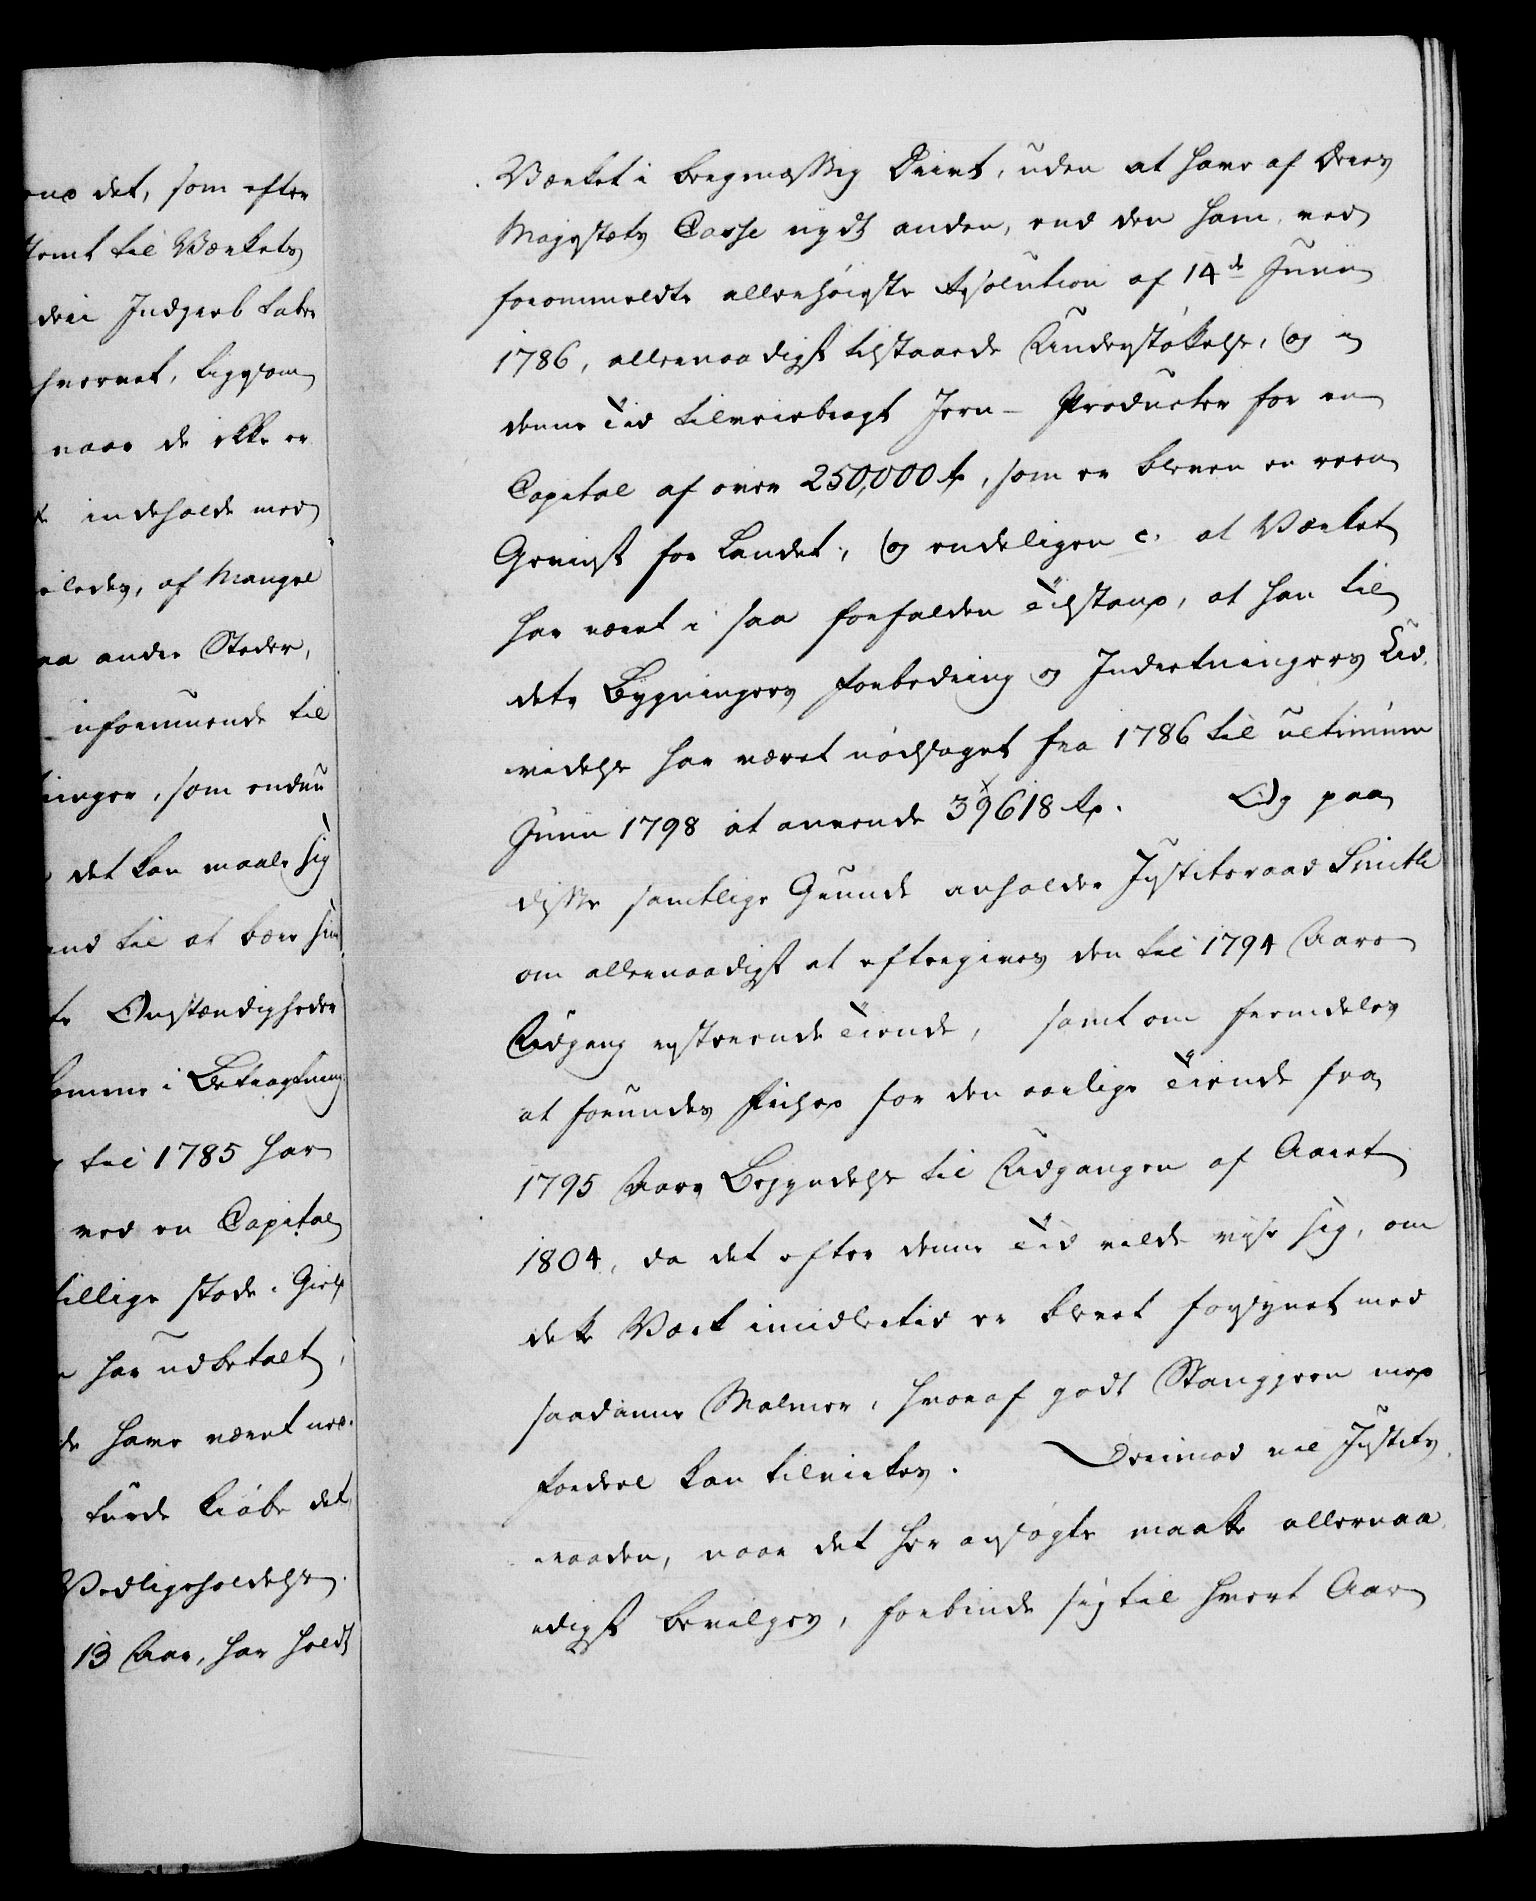 ens det, som efter
temt til Værkets
deri Indgreb
hvorvet, ligesom
naar de ikke er
indeholde med
eledes, af Mangel
aa andre Stæder,
ufornuende til
ringer, som endnu
det kan maale sig
and til at bære sin
te Omstændigheder
komme i Betragtning
til 1785 har
ved en Capital
tillige stode i Gield
har udbetalt,
de have været nød-
turde kiøbe det
Vedligeholdelse.
13 Aar, har holdt
Værket i bergmæssig Drivt, uden at have af Deres
Majestæts Casse nydt anden, end den ham ved
forommeldte allerhøieste Resolution af 14de Junii
1786, allernaadigst tilstaaede Understøttelse, og i
denne Tid tilveiebragt Jern- Producter for en
Capital af over 250,000 Rd, som er bleven en reen
Gevinst for Landet; og endeligen c. at Værket
har været i saa forfalden Tilstand, at han til
dets Bygningers Forbedring og Indretningers Ud-
videlse har været nødsaget fra 1786 til ultimum
Junii 1798 at anvende 39618 Rd. Og paa
disse samtlige Grunde anholder Justitsraad Smith
om allernaadigst at eftergives den til 1794 Aars
Udgang resterende Tiende, samt om fremdeles
at forundes Frihed for den aarlige Tiende fra
1795 Aars Begyndelse til Udgangen af Aaret
1804, da det efter denne Tid vilde vise sig, om
dette Værk imidlertid er blevet forsynet med
saadanne Malmer, hvoraf godt Stangjern med
Fordeel kan tilvirkes. Derimod vil Justits-
raaden, naar det her ansøgte maatte allernaa-
digst bevilges, forbinde sig til hvert Aar